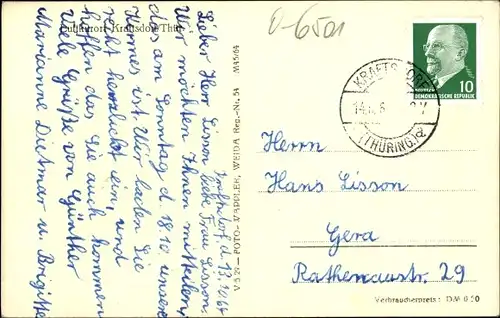 Luftkurort Kraftsdorf Thür.
0-6501
Kraftsdorf, d. 13. 10. 64
Lieber Herr Lisson, liebe Frau Lisson.
Wir möchten Ihnen mitteilen,
das am Sonntag d. 18.10. unsere
Kirmes ist. Wir laden Sie
recht herzlichst ein, und
hoffen das Sie auch kommen
Viele Grüße von Günther
Marianne Dietmar u. Brigitte
V 5 29 FOTO-WAPPLER, WEIDA Reg.-Nr. 54 M45/64
KRAFTSDORF
(THÜRING.)
10
DEUTSCHE DEMOKRATISCHE REPUBLIK
Herrn
Hans Lisson
Gera
Rathenaustr. 29
Verbraucherpreis: DM 0.20